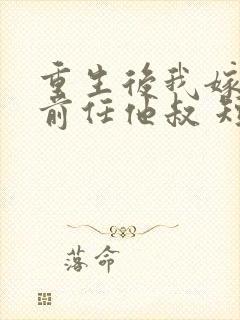 重生後我嫁
前任他叔 短
落命